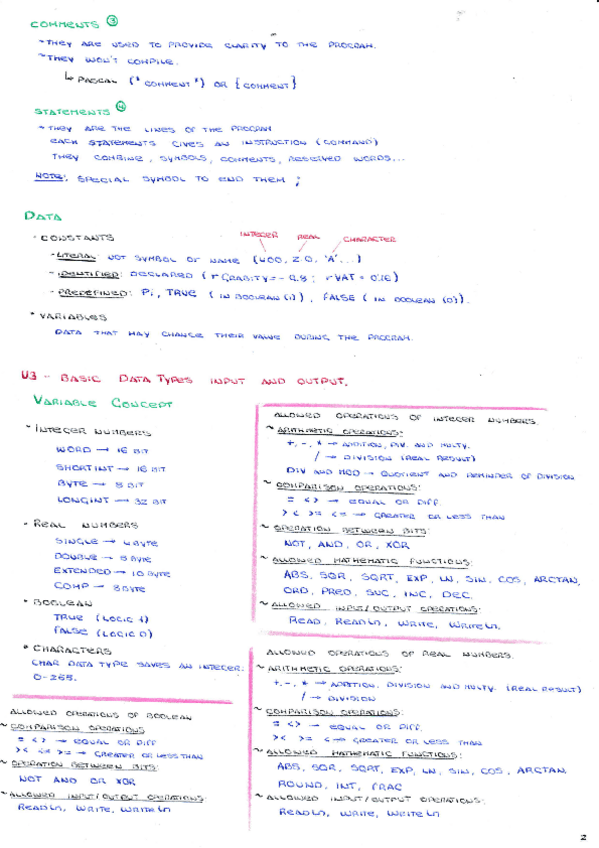 COMMENTS ③
~ THEY ARE USED TO PROVIDE CLARITY TO THE PROGRAM.
~ THEY WON'T COMPILE.
↳ PASCAL (* COMMENT *) OR {COMMENT}
STATEMENTS ④
~ THEY ARE THE LINES OF THE PROGRAM
EACH STATEMENTS GIVES AN INSTRUCTION (COMMAND)
THEY COMBINE, SYMBOLS, COMMENTS, RESERVED WORDS...
NOTE: SPECIAL SYMBOL TO END THEM ;
DATA
- CONSTANTS
INTEGER REAL CHARACTER
- LITERAL: NOT SYMBOL OF NAME (400, 2.0, 'A'...)
- IDENTIFIED: DECLARED (rGRABITY = - 9.8 ; rVAT = 0.16)
- PREDEFINED: Pi, TRUE (IN BOOLEAN (1)), FALSE (IN BOOLEAN (0)).
* VARIABLES
DATA THAT MAY CHANGE THEIR VALUE DURING THE PROGRAM.
U3 - BASIC DATA TYPES INPUT AND OUTPUT.
VARIABLE CONCEPT
~ INTEGER NUMBERS
WORD → 16 BIT
SHORTINT → 16 BIT
BYTE → 8 BIT
LONGINT → 32 BIT
- REAL NUMBERS
SINGLE → 4 BYTE
DOUBLE → 8 BYTE
EXTENDED → 10 BYTE
COMP → 8 BYTE
* BOOLEAN
TRUE (LOGIC 1)
FALSE (LOGIC 0)
* CHARACTERS
CHAR DATA TYPE SAVES AN INTEGER.
0-255.
ALLOWED OPERATIONS OF BOOLEAN
~ COMPARISON OPERATIONS
= <> → EQUAL OR DIFF
>< <= >= → GREATER OR LESS THAN
~ OPERATION BETWEEN BITS:
NOT AND OR XOR
~ ALLOWED INPUT/OUTPUT OPERATIONS:
READLN, WRITE, WRITELN
ALLOWED OPERATIONS OF INTEGER NUMBERS.
~ ARITHMETIC OPERATIONS:
+, -, * → ADDITION, DIV. AND MULTY.
/ → DIVISION (REAL RESULT)
DIV AND MOD → QUOTIENT AND REMINDER OF DIVISION
~ COMPARISON OPERATIONS:
= <> → EQUAL OR DIFF.
>< >= <= → GREATER OR LESS THAN
~ OPERATION BETWEEN BITS:
NOT, AND, OR, XOR
~ ALLOWED MATHEMATIC FUNCTIONS:
ABS, SQR, SQRT, EXP, LN, SIN, COS, ARCTAN,
ORD, PRED, SUC, INC, DEC.
~ ALLOWED INPUT/OUTPUT OPERATIONS:
READ, READLN, WRITE, WRITELN.
ALLOWED OPERATIONS OF REAL NUMBERS.
~ ARITHMETIC OPERATIONS:
+, -, * → ADDITION, DIVISION AND MULTY. (REAL RESULT)
/ → DIVISION
~ COMPARISON OPERATIONS:
= <> → EQUAL OR DIFF.
>< >= <= → GREATER OR LESS THAN
~ ALLOWED MATHEMATIC FUNCTIONS:
ABS, SQR, SQRT, EXP, LN, SIN, COS, ARCTAN,
ROUND, INT, FRAC
~ ALLOWED INPUT/OUTPUT OPERATIONS:
READLN, WRITE, WRITELN
2